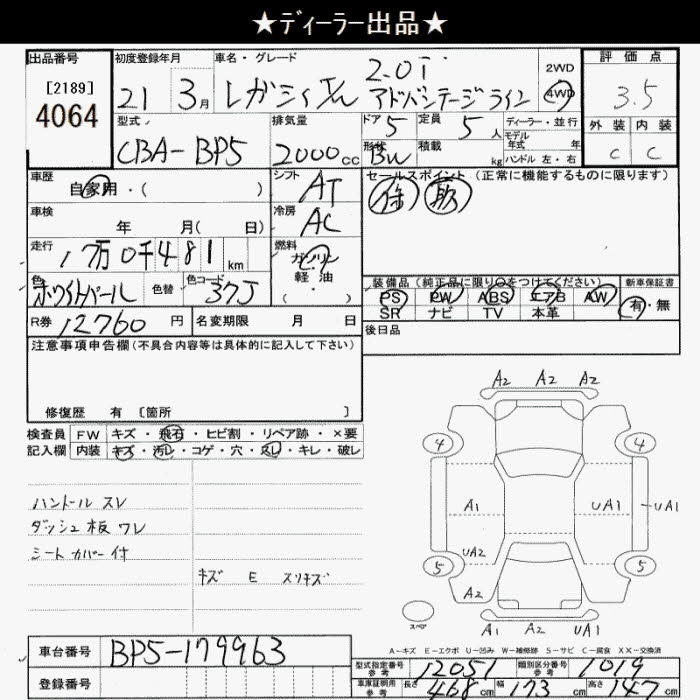 ★ディーラー出品★
出品番号
[2189]
4064
初度登録年月
21 3月
車名・グレード
レガシィ
2.0i
アドバンテージライン
2WD
4WD
評価点
3.5
外装 内装
C C
型式
CBA-BP5
排気量
2000cc
ドア 5
定員 5人
形状 BW
積載 kg
ディーラー・並行
モデル年式 年
ハンドル 左・右
車歴
自家用・( )
シフト
AT
セールスポイント(正常に機能するものに限ります)
保 取
車検
年 月( 日)
冷房
AC
走行
17万0千481km
燃料
ガソリン
軽油
( ・ )
色
ホワイトパール
色替
色コード
37J
装備品(純正品に限り○をつけてください)
PS PW ABS エアB AW
SR ナビ TV 本革
新車保証書
有・無
R券 12760円
名変期限 月 日
後日品
注意事項申告欄(不具合内容等は具体的に記入して下さい)
修復歴 有 [箇所 ]
検査員記入欄
FW キズ・飛石・ヒビ割・リペア跡・×要
内装 キズ・汚レ・コゲ・穴・スレ・キレ・破レ
ハンドル スレ
ダッシュ板 ワレ
シートカバー付
キズ E スリキズ
A2 A2 A2
4 4
A1 UA1 UA1
UA2
5 5
A2
スペア
A1 A2 UA1
A-キズ E-エクボ U-凹み W-補修跡 S-サビ C-腐食 XX-交換済
車台番号 BP5-179963
登録番号
型式指定番号 参考 12051
類別区分番号 参考 1019
車庫証明用 参考 長さ 468cm 幅 173cm 高さ 147cm